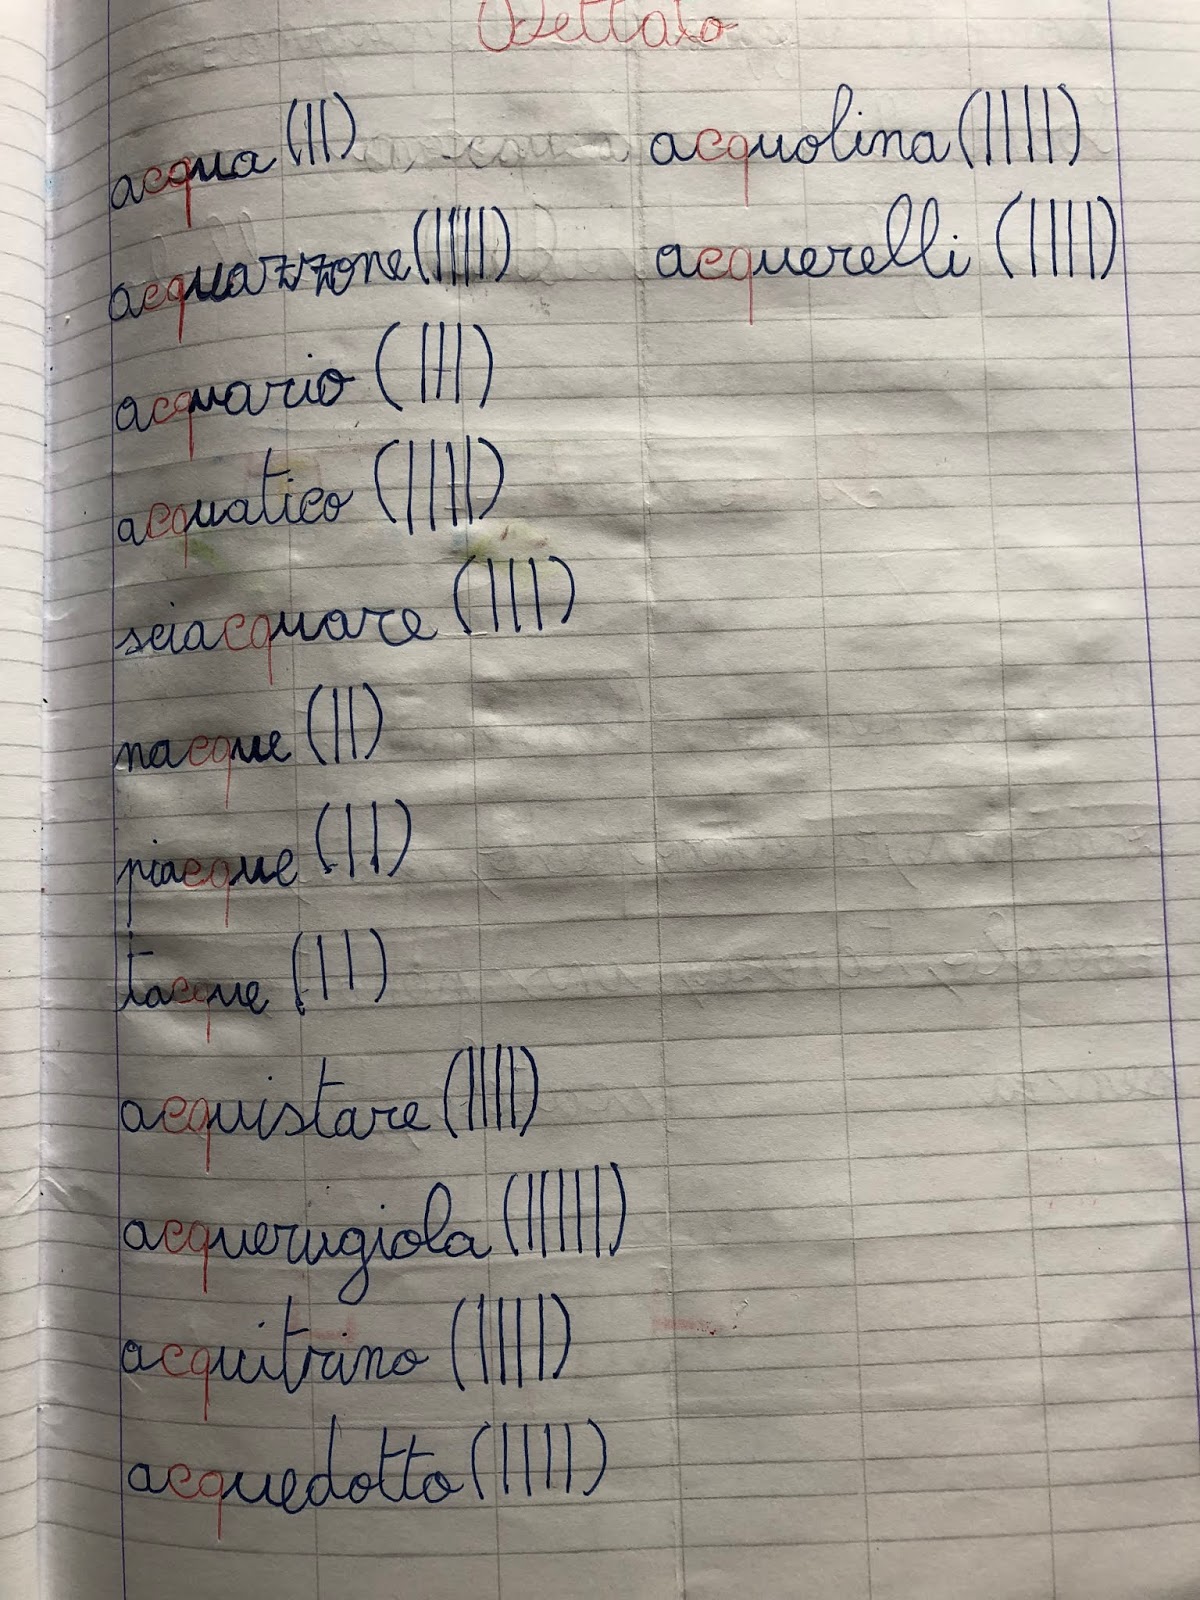 Dettato
acqua (||)
acquazzone (||||)
acquario (|||)
acquatico (||||)
sciacquare (|||)
nacque (||)
piacque (||)
tacque (||)
acquistare (||||)
acquerugiola (|||||)
acquitrino (||||)
acquedotto (||||)
acquolina (||||)
acquerelli (||||)